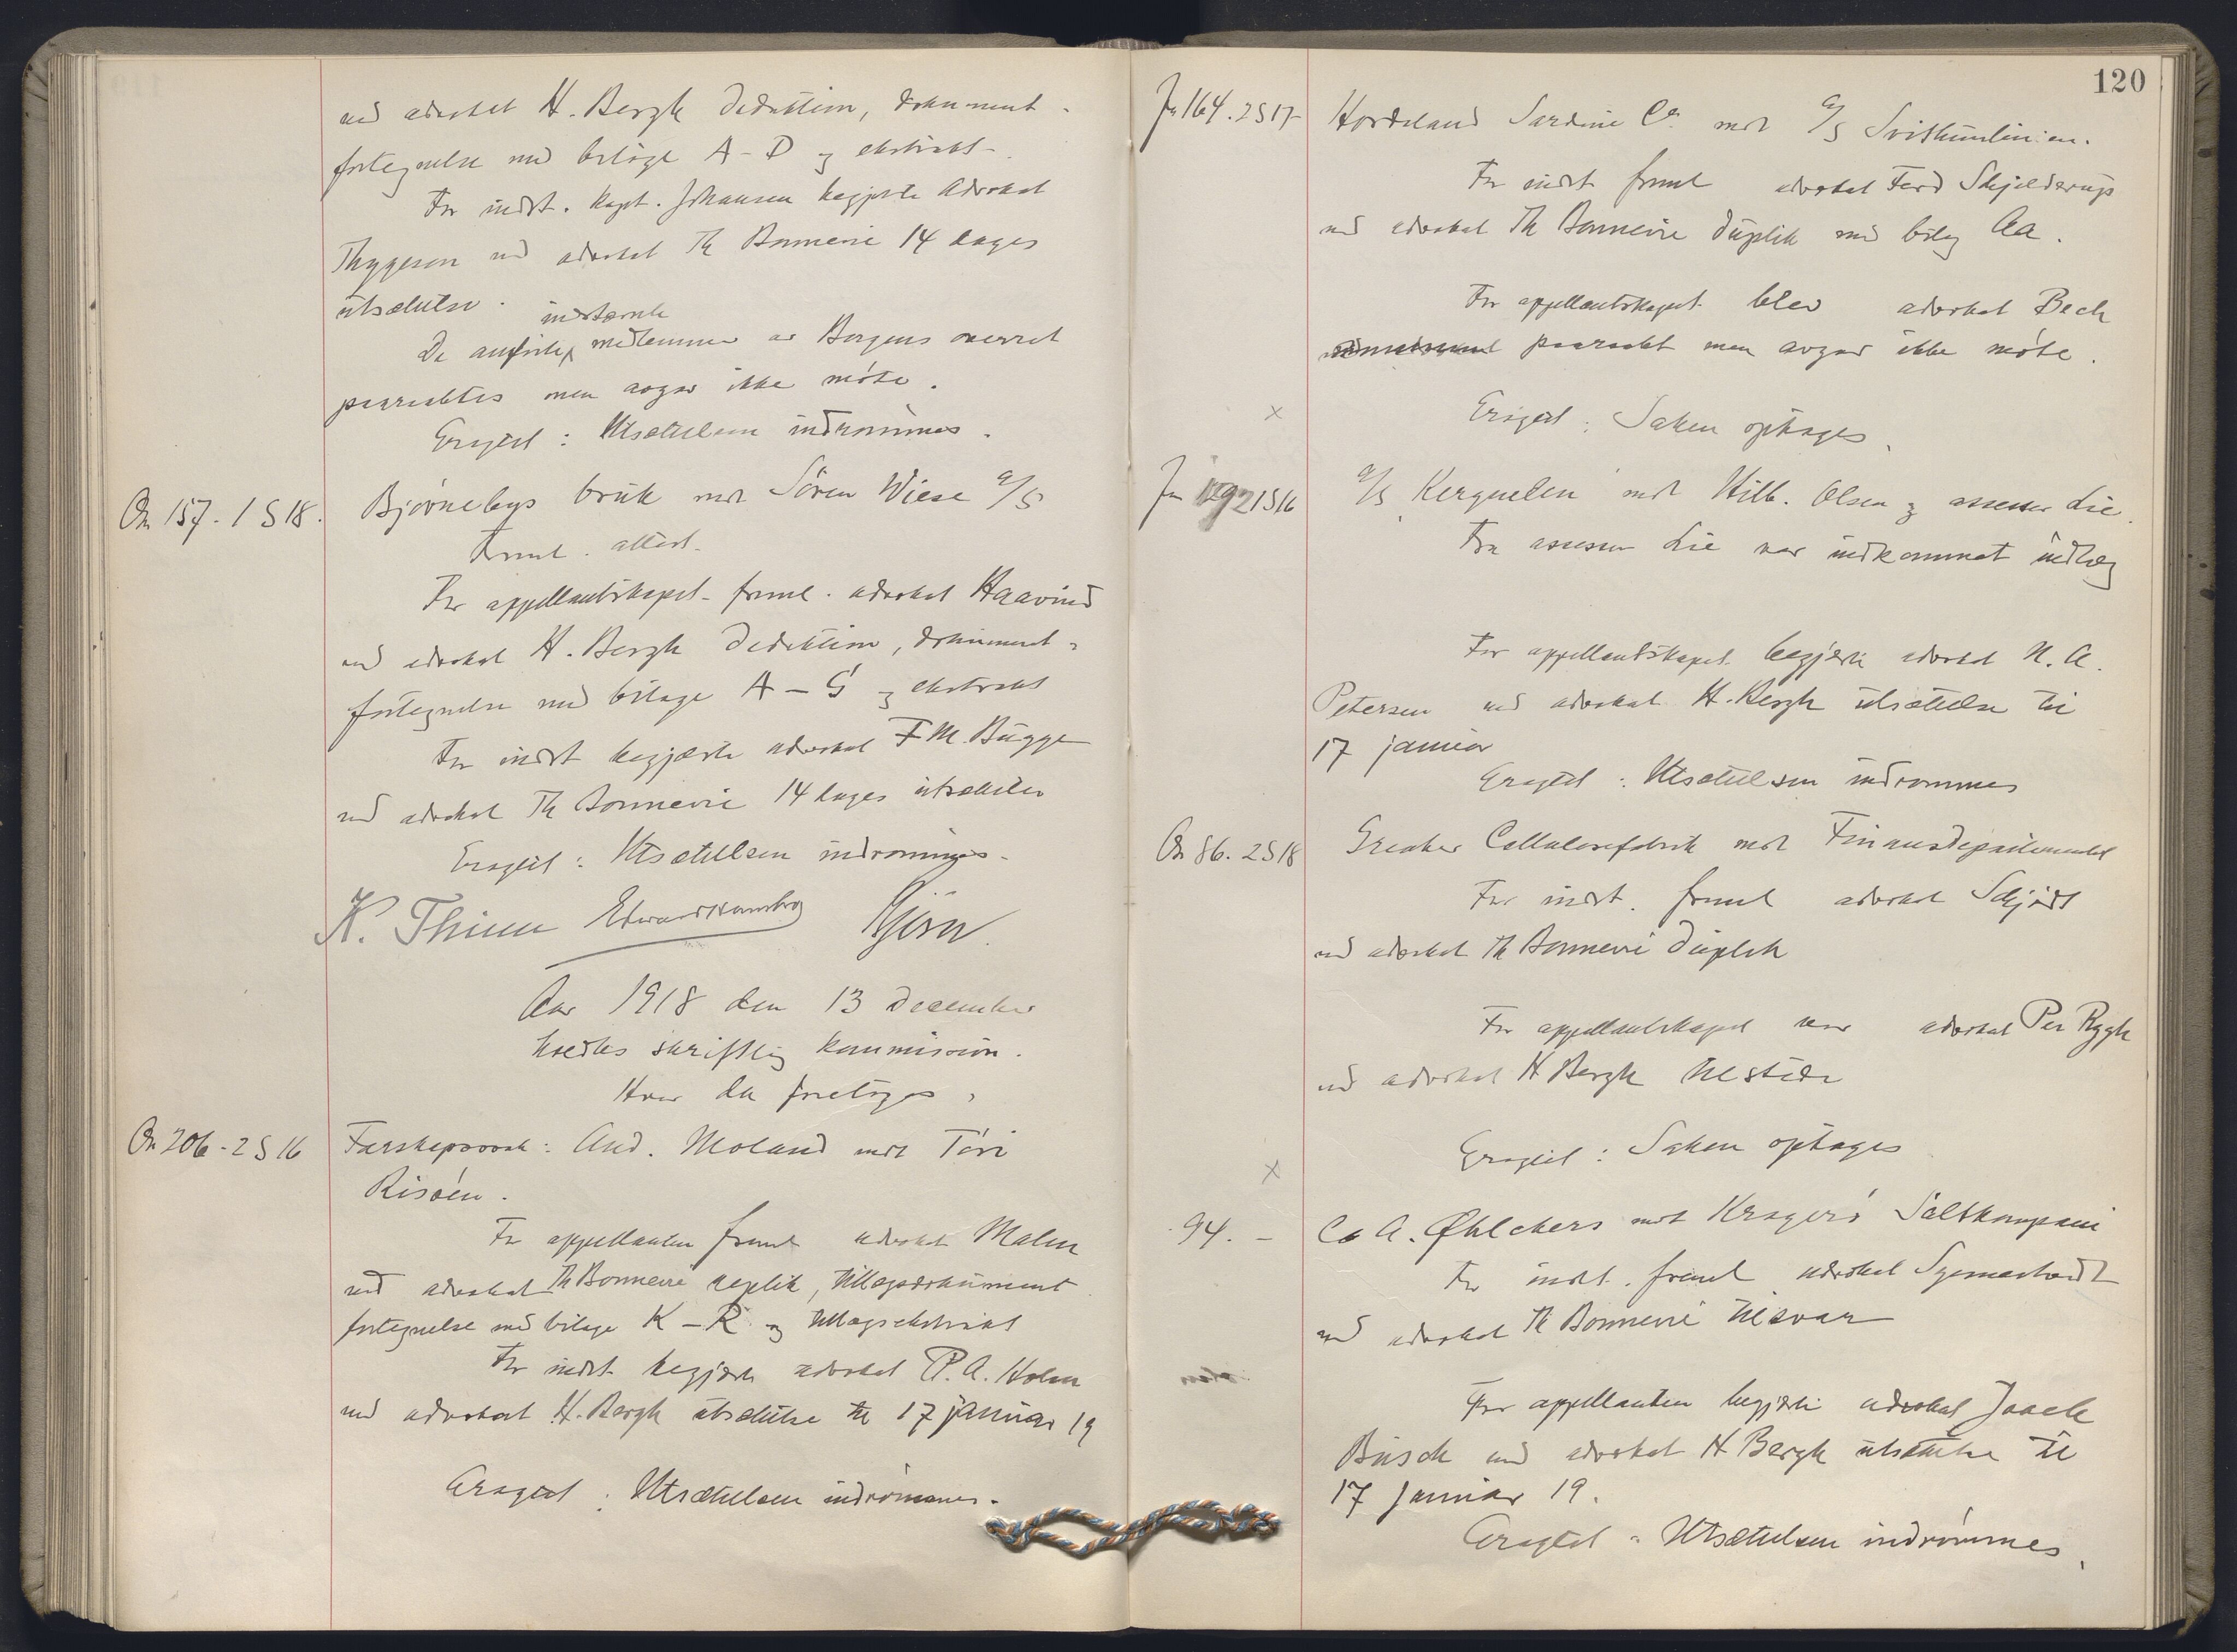 ved advokat H. Bergh deduktion, dokument-
fortegnelse med bilage A-D og ekstrakt.
For indst. kapt. Johansen begjærte advokat
Thygeson ved advokat Th Bonnevie 14 dages
utsættelse.
indstevnte
De medlemmer av Bergens overret
paaraabtes men avgav ikke møte.
Eragtet: Utsættelsen indrømmes.
On 157. 1 S 18.
Bjørnebys bruk mot Sören Wiese A/S
Freml. attest.
For appellantskapet freml. advokat Haavind
ved advokat H. Bergh deduktion, dokument-
fortegnelse med bilage A-G og ekstrakt
For indst begjærte advokat F M. Bugge
ved advokat Th Bonnevie 14 dages utsættelse
Eragtet: Utsættelsen indrømmes.
K. Thinn Edward Hambro Bjørn
Aar 1918 den 13 December
holdtes skriftlig kommission.
Hvor da foretoges,
On 206-2 S 16
Farskapssak: And. Moland mot Töri
Risöen.
For appellanten freml advokat Malm
ved advokat Th Bonnevie replik, tillægsdokument
fortegnelse med bilage K-R og tillægsekstrakt
For indst begjærte advokat P. A. Holm
ved advokat H. Bergh utsættelse til 17 januar 19
Eragtet: Utsættelsen indrømmes.
120
Jn 164. 2 S 17
Hordaland Sardine Co. mot A/S Svithunlinjen.
For indst freml advokat Ferd Schjelderup
ved advokat Th Bonnevie duplik med bilag Aa.
For appellantskapet blev advokat Bech
paaraabt men avgav ikke møte.
x
Eragtet: Saken optages.
Jn 192 1 S 16
A/S Kerguelen mot Hilb. Olsen og assessor Lie.
Fra assessor Lie var indkommet indlæg
For appellantskapet begjærte advokat N. A.
Petersen ved advokat H. Bergh utsættelse til
17 januar
Eragtet: Utsættelsen indrømmes
On 86. 2 S 18
Greaker Cellulosefabrik mot Finansdepartementet
For indst. freml advokat Schjødt
ved advokat Th Bonnevie duplik
For appellantskapet var advokat Per Rygh
ved advokat H Bergh tilstede
Eragtet: Saken optages
x
94. -
C A. Øhlckers mot Kragerö Saltkompani
For indst. freml advokat
ved advokat Th Bonnevie tilsvar
For appellanten begjærte advokat Joach
Busch ved advokat H Bergh utsættelse til
17 januar 19.
Eragtet: Utsættelsen indrømmes.